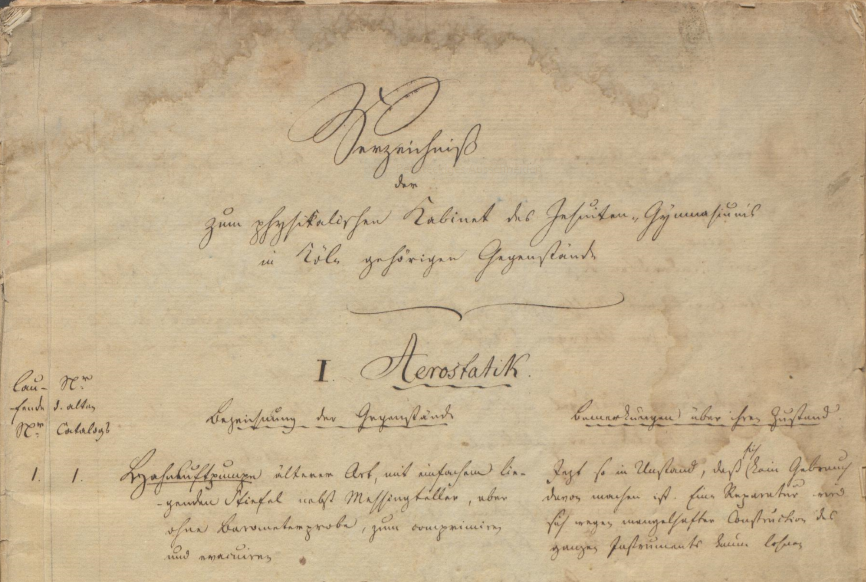 Verzeichniß
der
zum physikalischen Kabinet des Jesuiten-Gymnasiums
in Köln gehörigen Gegenstände
I. Aerostatik.
Lau- Nr.
fende d. alten
Nr. Catalogs
Bezeichnung der Gegenstände
Bemerkungen über ihren Zustand
1. 1. Hahnluftpumpe älterer Art, mit einfachem lie-
genden Stiefel nebst Messingteller, aber
ohne Barometerprobe, zum comprimiren
und evacuiren
Jetzt so in Unstand, daß sich kein Gebrauch
davon machen ist. Eine Reparatur wird
sich wegen mangelhafter Construction des
ganzen Instruments kaum lohnen